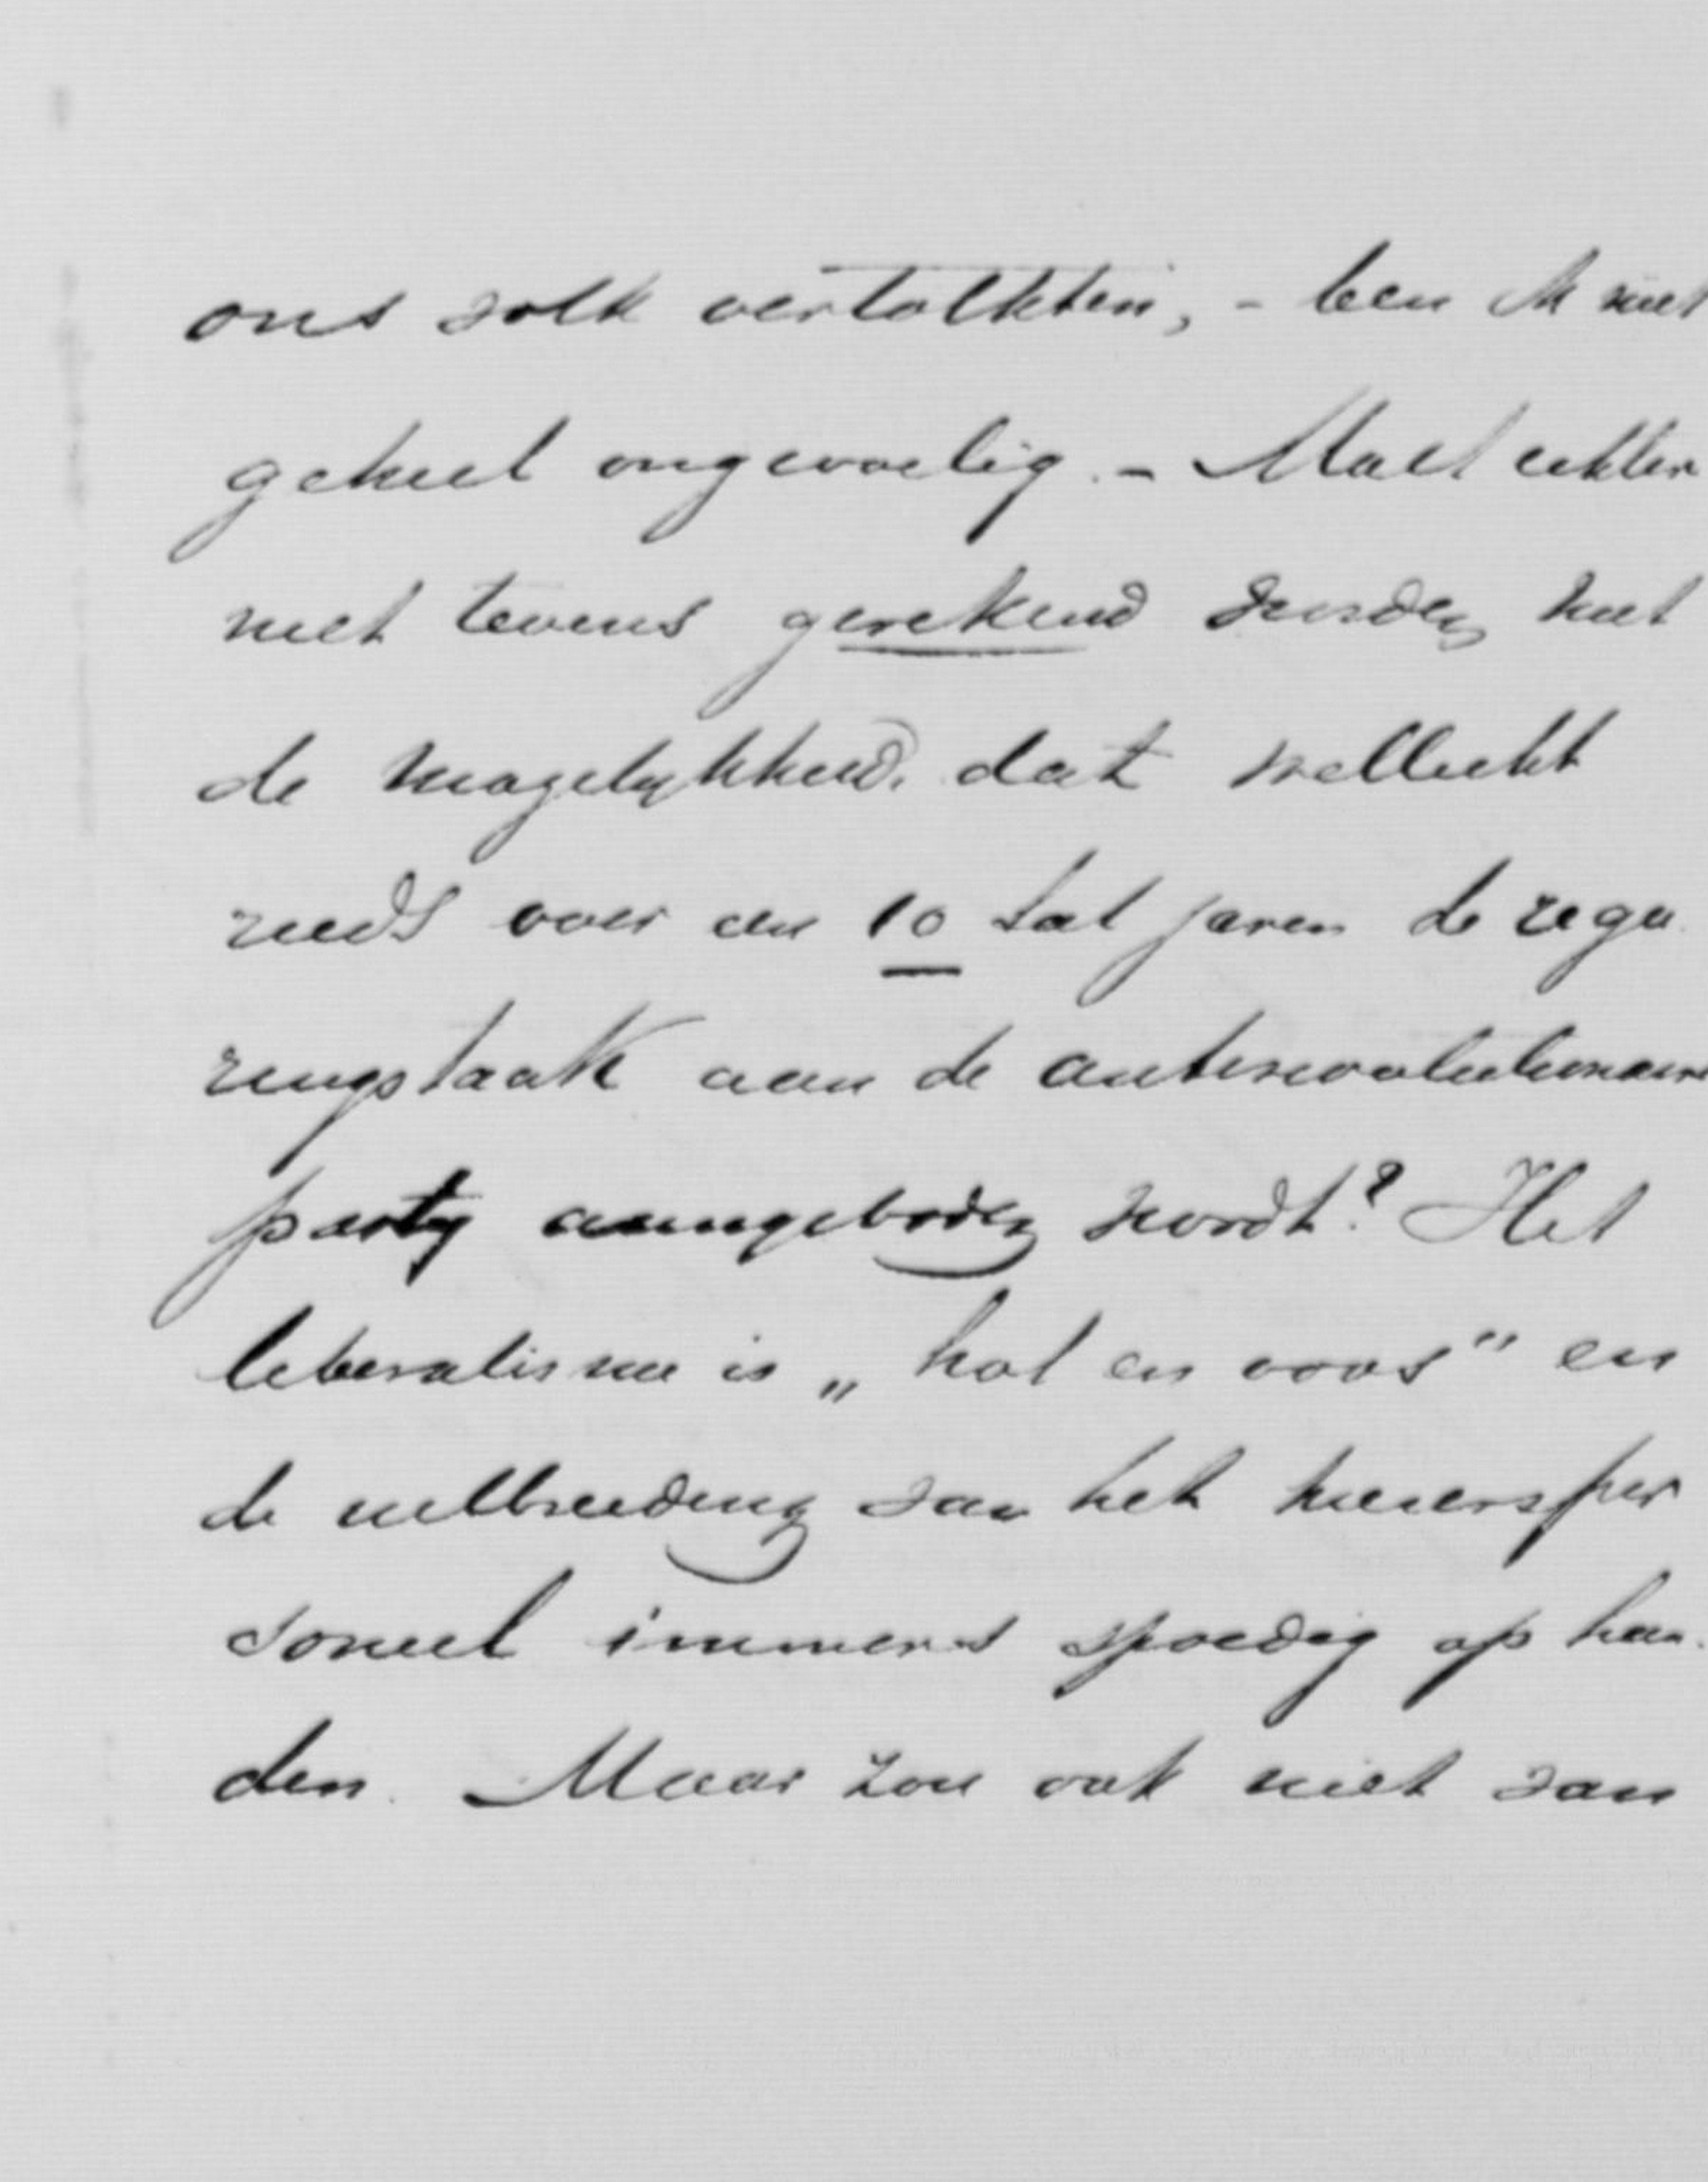 ons volk vertolkten, - ben ik niet
geheel ongevoelig. - Moet echter
niet tevens gerekend worden met
de mogelykheid, dat wellicht
reeds over een 10 tal jaren de rege
ringstaak aan de antirevolutionaire
party aangeboden wordt? Het
liberalisme is „hol en voos" en
de uitbreiding van het kiezersper
soneel immers spoedig op han-
den. Maar zou ook niet van